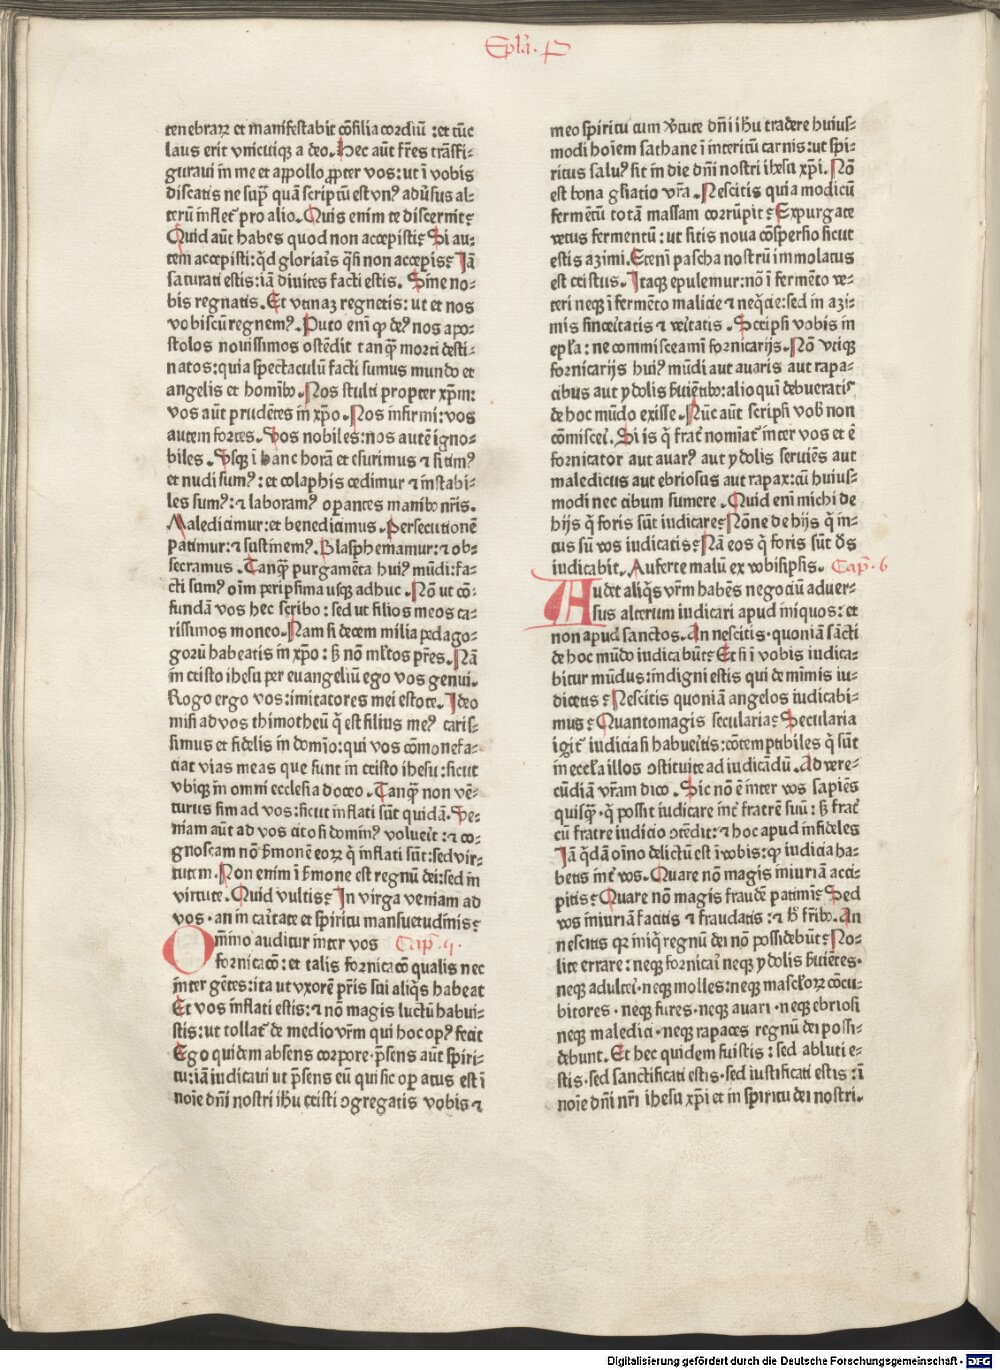 Epl'a. P
tenebraꝝ et manifestabit cōsilia cordiū : et tūc
laus erit vnicuiqꝫ a deo. Hec aūt fr̄es trāsfi-
guraui in me et appollo ꝓpter vos : ut ī vobis
discatis ne supͣ quā scriptū est vnꝰ adūsus al-
terū infletͬ pro alio. Quis enim te discernit?
Quid aūt habes quod non accepisti? Si au-
tem accepisti : qd̄ gloriaris q̄si non accepis? Iā
saturati estis : iā diuites facti estis. Sine no-
bis regnatis. Et vtinaꝫ regnetis : ut et nos
vobiscū regnemꝰ. Puto eni ꝙ deꝰ nos apo-
stolos nouissimos ostēdit tanqͣꝫ morti desti-
natos : quia spectaculū facti sumus mundo et
angelis et homībꝫ. Nos stulti propter xp̄m :
vos aūt prudētes in xp̄o. Nos infirmi : vos
autem fortes. Vos nobiles : nos autē igno-
biles. Vsqꝫ ī hanc horā et esurimus ⁊ sitimꝰ
et nudi sumꝰ : et colaphis cedimur ⁊ instabi-
les sumꝰ : ⁊ laboramꝰ oꝑantes manibꝫ nr̄is.
Maledicimur : et benedicimus. Persecutionē
patimur : ⁊ sustinemꝰ. Blasphemamur : ⁊ ob-
secramus. Tanqͣꝫ purgamēta huiꝰ mūdi : fa-
cti sumꝰ oīm peripsima usqꝫ adhuc. Nō ut cō-
fundā vos hec scribo : sed ut filios meos ca-
rissimos moneo. Nam si decem milia pedago-
gorū habeatis in xp̄o : sꝫ nō ml'tos pr̄es. Nā
in cristo ihesu per euangeliū ego vos genui.
Rogo ergo vos : imitatores mei estote. Ideo
misi ad vos thimotheū q̄ est filius meꝰ caris-
simus et fidelis in domīo : qui vos cōmonefa-
ciat vias meas que sunt in cristo ihesu : sicut
vbiqꝫ in omni ecclesia doceo. Tanqͣꝫ non vē-
turus sim ad vos : sicut inflati sūt quidā. Ve-
niam aūt ad vos cito si dominꝰ voluerit : ⁊ co-
gnoscam nō s̄monē eoꝝ q̄ inflati sūt : sed vir-
tutem. Non enim ī s̄mone est regnū dei : sed in
virtute. Quid vultis? In virga veniam ad
vos · an in caritate et spiritu mansuetudinis?
Omnino auditur inter vos Cap. 5.
fornicacō : et talis fornicacō qualis nec
inter gētes : ita ut vxorē pr̄is sui aliqͥs habeat
Et vos inflati estis : ⁊ nō magis luctū habui-
stis : ut tollatͬ de medio vr̄m qui hoc opꝰ fecit
Ego quidem absens corpore · p̄sens aūt spiri-
tu : iā iudicaui ut p̄sens eū qui sic oꝑatus est ī
noīe dn̄i nostri ih̄u cristi ꝯgregatis vobis ⁊
meo spiritu cum v̓tute dn̄i ih̄u tradere huius-
modi hoīem sathane ī interitū carnis : ut spi-
ritus saluꝰ sit in die dn̄i nostri ihesu xp̄i. Nō
est bona gl'iatio vr̄a. Nescitis quia modicū
fermētū totā massam corrūpit? Expurgate
vetus fermentū : ut sitis noua cōspersio sicut
estis azimi. Eteni pascha nostrū immolatus
est cristus. Itaqꝫ epulemur : nō ī fermēto ve-
teri neqꝫ ī fermēto malicie ⁊ neqͥcie : sed in azi-
mis sinceritatis ⁊ veritatis. Scripsi vobis in
epl'a : ne commisceamī fornicarijs. Nō vtiqꝫ
fornicarijs huiꝰ mūdi aut auaris aut rapa-
cibus aut ydolis s̄uientibꝫ : alioqui debueratis
de hoc mūdo exisse. Nūc aūt scripsi vob̄ non
cōmisceri. Si is q̄ frater nomiatͬ inter vos et ē
fornicator aut auarꝰ aut ydolis seruiēs aut
maledicus aut ebriosus aut rapax : cū huius-
modi nec cibum sumere. Quid eni michi de
hijs q̄ foris sūt iudicare? Nōne de hijs q̄ in-
tus sūt vos iudicatis? Nā eos q̄ foris sūt d̄s
iudicabit. Auferte malū ex vobisipsis. Cap. 6
Audet aliqͥs vr̄m habēs negociū aduer-
sus alterum iudicari apud iniquos : et
non apud sanctos. An nescitis · quoniā sācti
de hoc mūdo iudicabūt? Et si ī vobis iudica-
bitur mūdus : indigni estis qui de minimis iu-
dicetis? Nescitis quoniā angelos iudicabi-
mus? Quantomagis secularia? Secularia
igitͬ iudicia si habueritis : cōtemptibiles q̄ sūt
in eccl'a illos ꝯstituite ad iudicādū. Ad vere-
cūdiā vr̄am dico. Sic nō ē inter vos sapiēs
quisqͣꝫ · q̄ possit iudicare intͬ fratrē suū : sꝫ fratͬ
cū fratre iudicio ꝯtēdit : ⁊ hoc apud infideles
Iā qͥdā oīno delictū est ī vobis : ꝙ iudicia ha-
betis intͬ vos. Quare nō magis iniuriā acci-
pitis? Quare nō magis fraudē patimī? Sed
vos iniuriā facitis ⁊ fraudatis : ⁊ h̄ fr̄ibꝫ. An
nescitis qꝛ iniqͥ regnū dei nō possidebūt? No-
lite errare : neqꝫ fornicari neqꝫ ydolis s̄uiētes ·
neqꝫ adulteri · neqꝫ molles : neqꝫ mascl'oꝝ cōcu-
bitores · neqꝫ fures · neqꝫ auari · neqꝫ ebriosi
neqꝫ maledici · neqꝫ rapaces regnū dei possi-
debunt. Et hec quidem fuistis : sed abluti e-
stis · sed sanctificati estis · sed iustificati estis : ī
noīe dn̄i nr̄i ihesu xp̄i et in spiritu dei nostri.
Digitalisierung gefördert durch die Deutsche Forschungsgemeinschaft - DFG